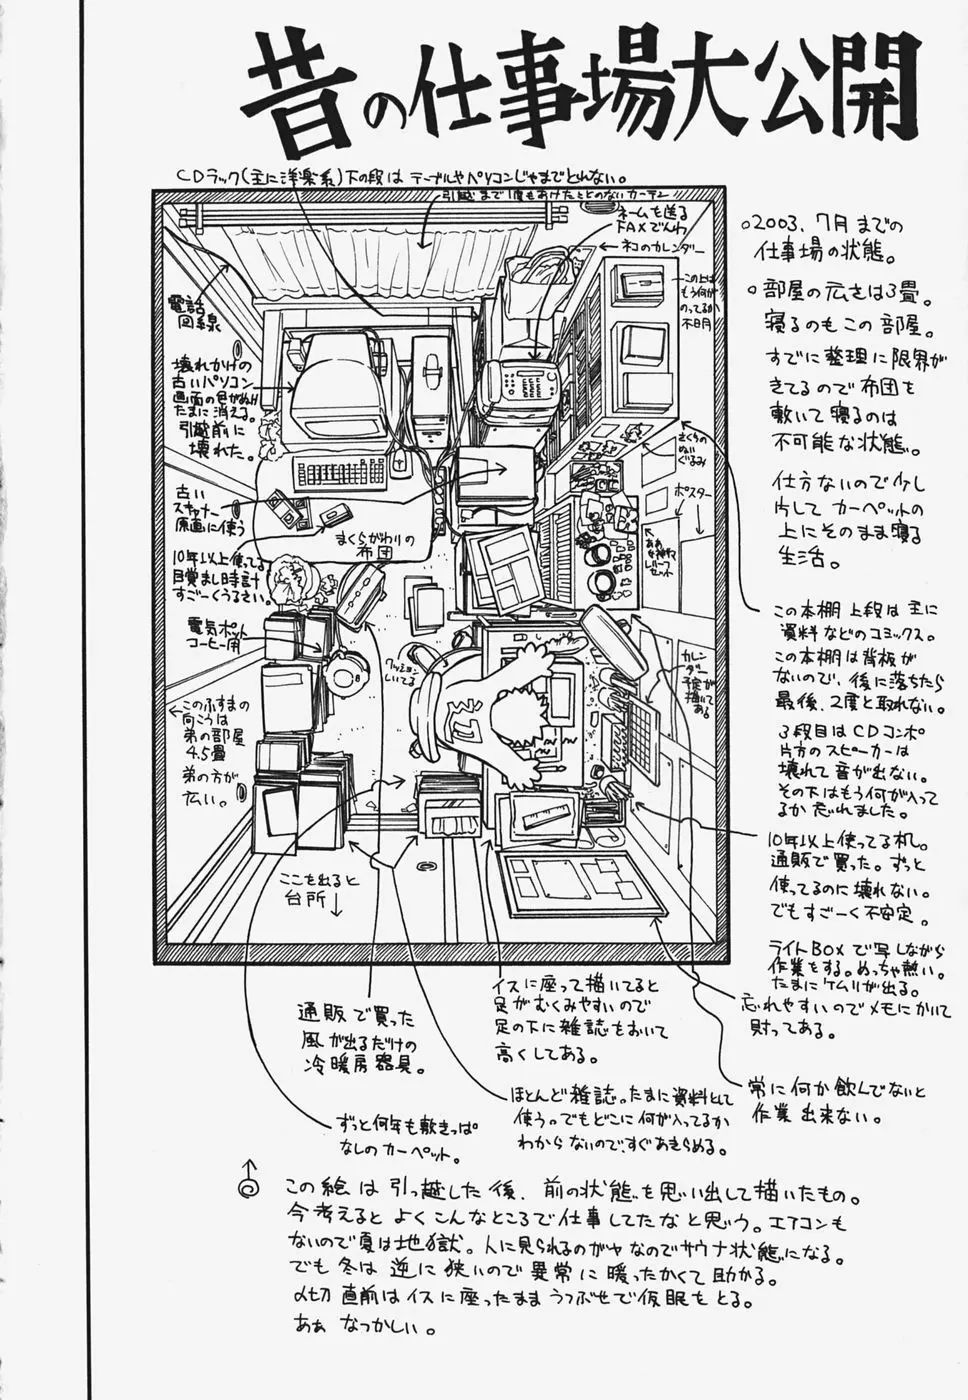 昔の仕事場大公開
CDラック(主に洋楽系)下の段はテーブルやパソコンじゃまでとれない。
引越まで1度もあけたことのないカーテン
ネームを送る
FAXでんわ
ネコのカレンダー
この上は
もう何が
のってるか
不明
電話
回線
壊れかけの
古いパソコン
画面の色がぬけ
たまに消える。
引越前に
壊れた。
さくらの
ぬいぐるみ
ポスター
古い
スキャナー
原画に使う
まくらがわりの
布団
10年以上使ってる
目覚まし時計
すごーくうるさい。
電気ポット
コーヒー用
クッション
しいてる
カレン
ダー
予定が
描いて
ある
←このふすまの
向こうは
弟の部屋
4.5畳
弟の方が
広い。
ここを出ると
台所↓
○2003.7月までの
仕事場の状態。
○部屋の広さは3畳。
寝るのもこの部屋。
すでに整理に限界が
きてるので布団を
敷いて寝るのは
不可能な状態。
仕方ないので少し
片してカーペットの
上にそのまま寝る
生活。
この本棚上段は主に
資料などのコミックス。
この本棚は背板が
ないので、後に落ちたら
最後、2度と取れない。
3段目はCDコンポ
片方のスピーカーは
壊れて音が出ない。
その下はもう何が入って
るか忘れました。
10年以上使ってる机。
通販で買った。ずっと
使ってるのに壊れない。
でもすごーく不安定。
ライトBOXで写しながら
作業をする。めっちゃ熱い。
たまにケムリが出る。
忘れやすいのでメモにかいて
貼ってある。
常に何か飲んでないと
作業出来ない。
イスに座って描いてると
足がむくみやすいので
足の下に雑誌をおいて
高くしてある。
通販で買った
風が出るだけの
冷暖房器具。
ほとんど雑誌。たまに資料として
使う。でもどこに何が入ってるか
わからないので、すぐあきらめる。
ずっと何年も敷きっぱ
なしのカーペット。
この絵は引っ越した後、前の状態を思い出して描いたもの。
今考えるとよくこんなところで仕事してたなと思う。エアコンも
ないので夏は地獄。人に見られるのがヤなのでサウナ状態になる。
でも冬は逆に狭いので異常に暖ったかくて助かる。
〆切直前はイスに座ったままうつぶせで仮眠をとる。
ああなつかしい。